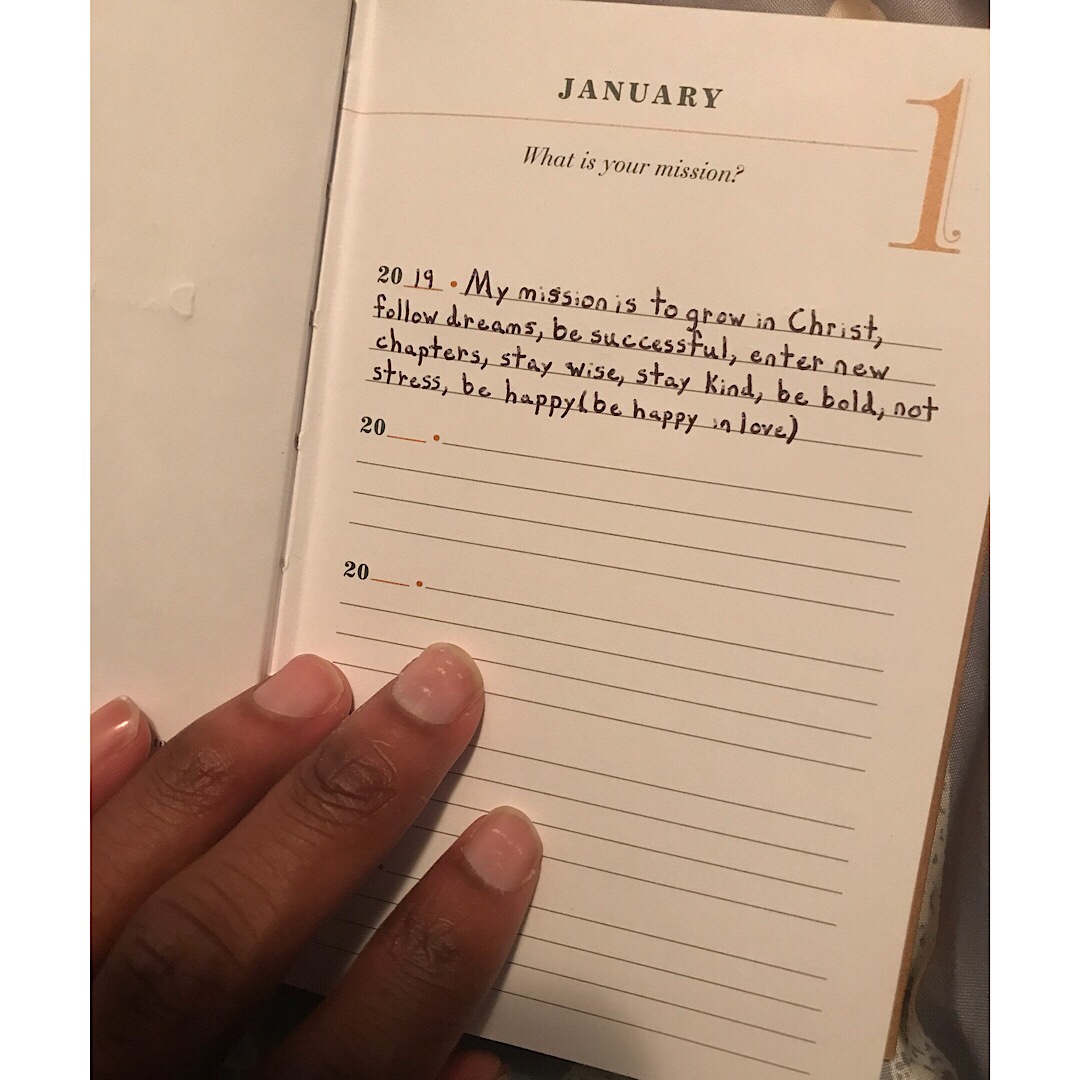 JANUARY
1
What is your mission?
20 19 • My mission is to grow in Christ,
follow dreams, be successful, enter new
chapters, stay wise, stay kind, be bold, not
stress, be happy (be happy in love)
20___ •
20___ •